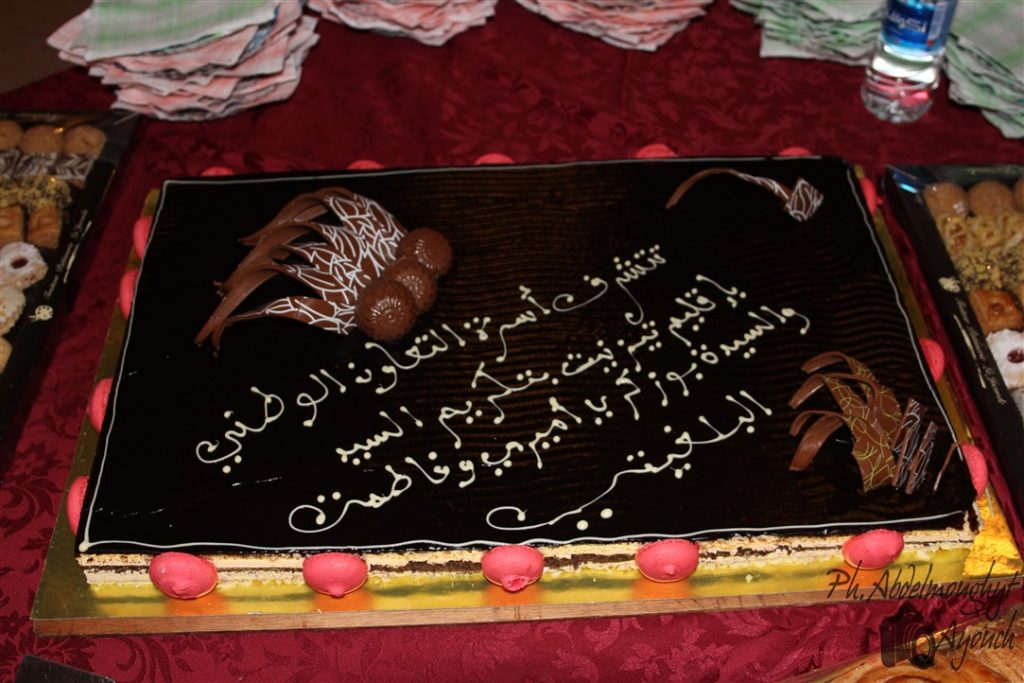 تتشرف أسرة التعاون الوطني
بإقليم تيزنيت بتكريم السيد
والسيدة بوزكر باهمي وفاطمة
البلغيتي
Ph. Abdelmoghyt
Ayouch